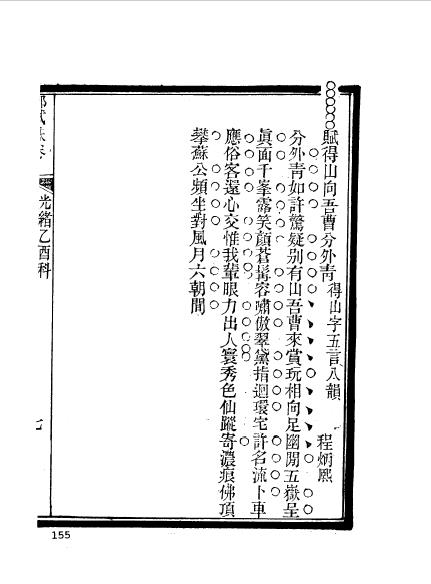 賦得山向吾曹分外靑 得山字五言八韻 程炳熙
分外靑如許驚疑別有山吾曹來賞玩相向足幽閒五嶽呈
眞面千峯露笑顏蒼髯容嘯傲翠黛指迴環宅許名流卜車
應俗客還心交惟我輩眼力出人寰秀色仙蹤寄濃痕佛頂
攀蘇公頻坐對風月六朝間
試硃卷 光緒乙酉科
155